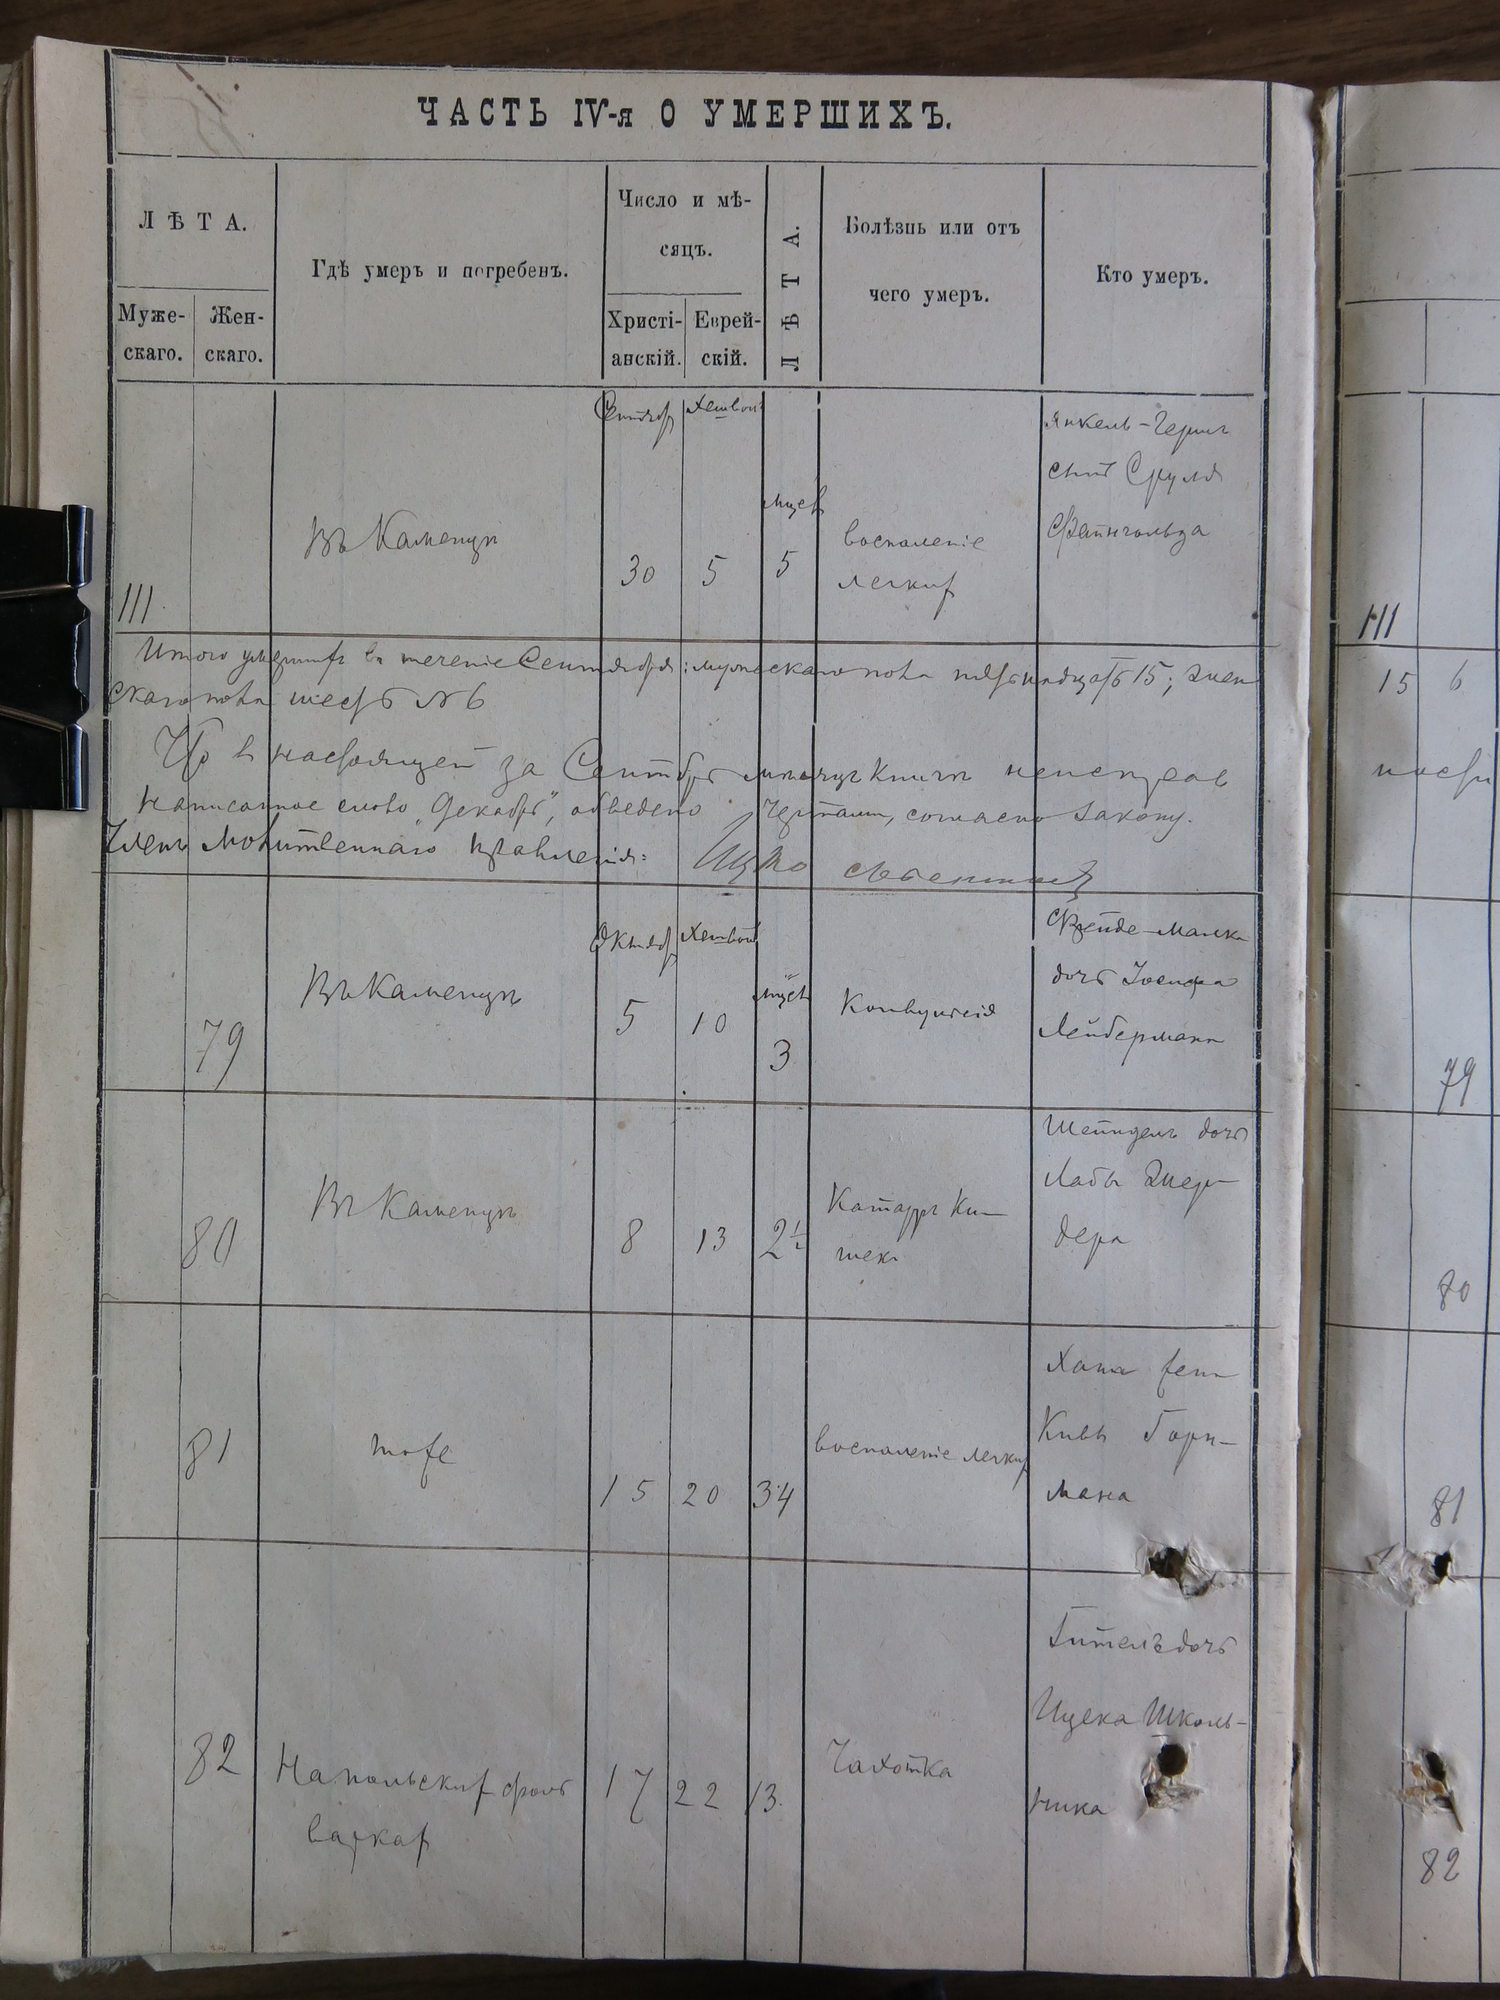 ЧАСТЬ IV-я О УМЕРШИХЪ.
ЛѢТА.
Муже-
скаго.
Жен-
скаго.
Гдѣ умеръ и погребенъ.
Число и мѣ-
сяцъ.
Христі-
анскій.
Еврей-
скій.
ЛѢТА.
Болѣзнь или отъ
чего умеръ.
Кто умеръ.
111
Въ Каменцѣ
Сентябр
30
5
5
воспаленіе
легких
Янкель-Герш
сынъ Сруля
Файнгольда
Итого умерших в течение Сентября: мужескаго пола пятнадцать 15; жен
скаго пола шесть № 6
Что в настоящей за Сентябрь месяц книги
написанное слово „Декабрь“, обведено чертами, согласно закону.
Членъ Молитвеннаго правленія:
79
Въ Каменцѣ
Октябр
5
10
3
Конвульсія
Фрейде-Малка
дочь Іосифа
Лейбермана
80
Въ Каменцѣ
8
13
2½
Катарръ Ки-
шек
Шейндель дочь
дера
81
тоже
15
20
34
воспаление легких
Хана жена
Кивы
мана
82
На польских фоль
варках
17
22
13.
Чахотка
Гитель дочь
Ицека Школь-
ника
111
15 6
79
80
81
82